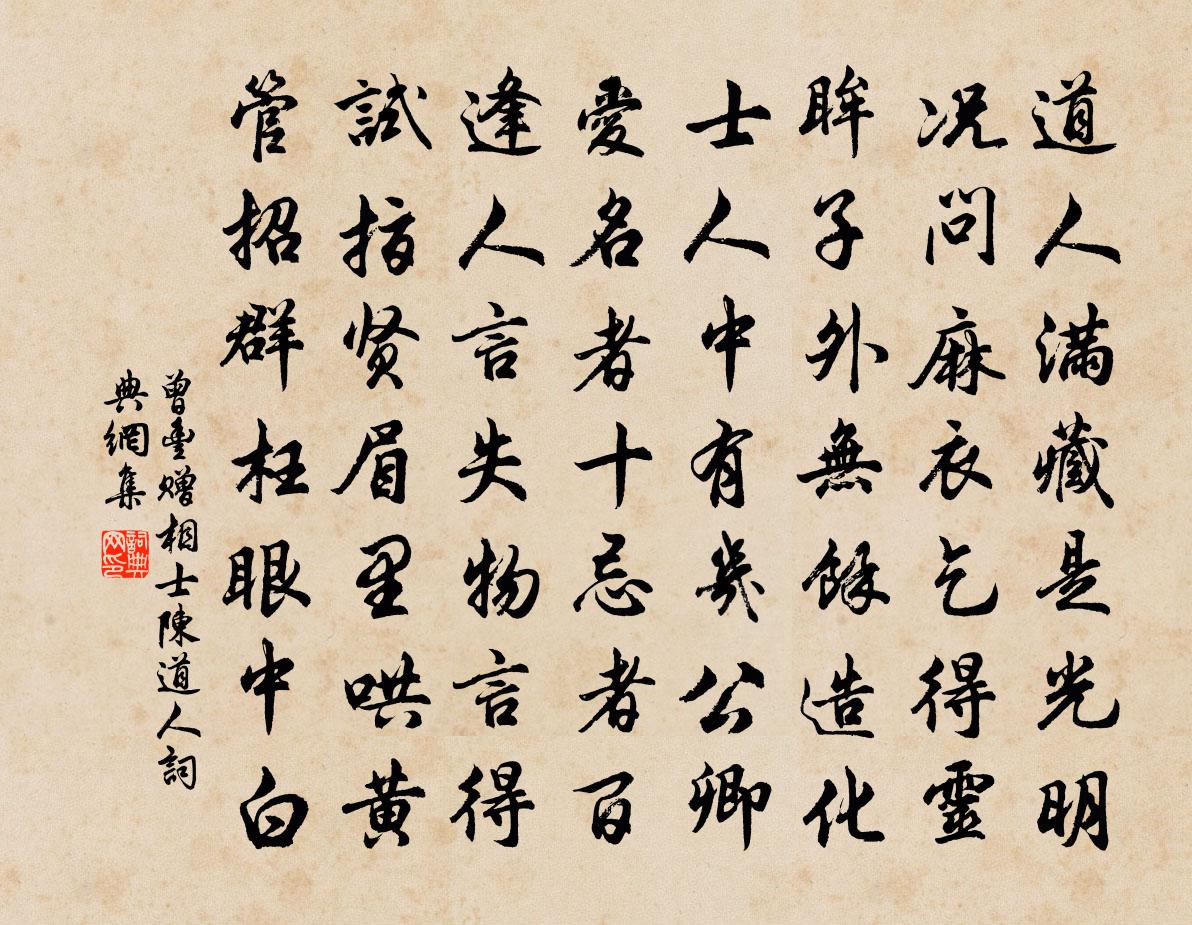 道人滿藏是光明
况問麻衣乞得靈
眸子外無餘造化
士人中有幾公卿
愛名者十忌者百
逢人言失物言得
試指贤眉里哄黄
管招群枉眼中白
曾豐赠相士陳道人詞
典網集
詞典网印